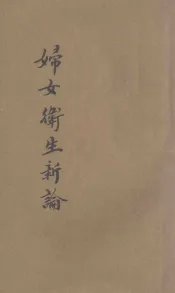 婦女衛生新論